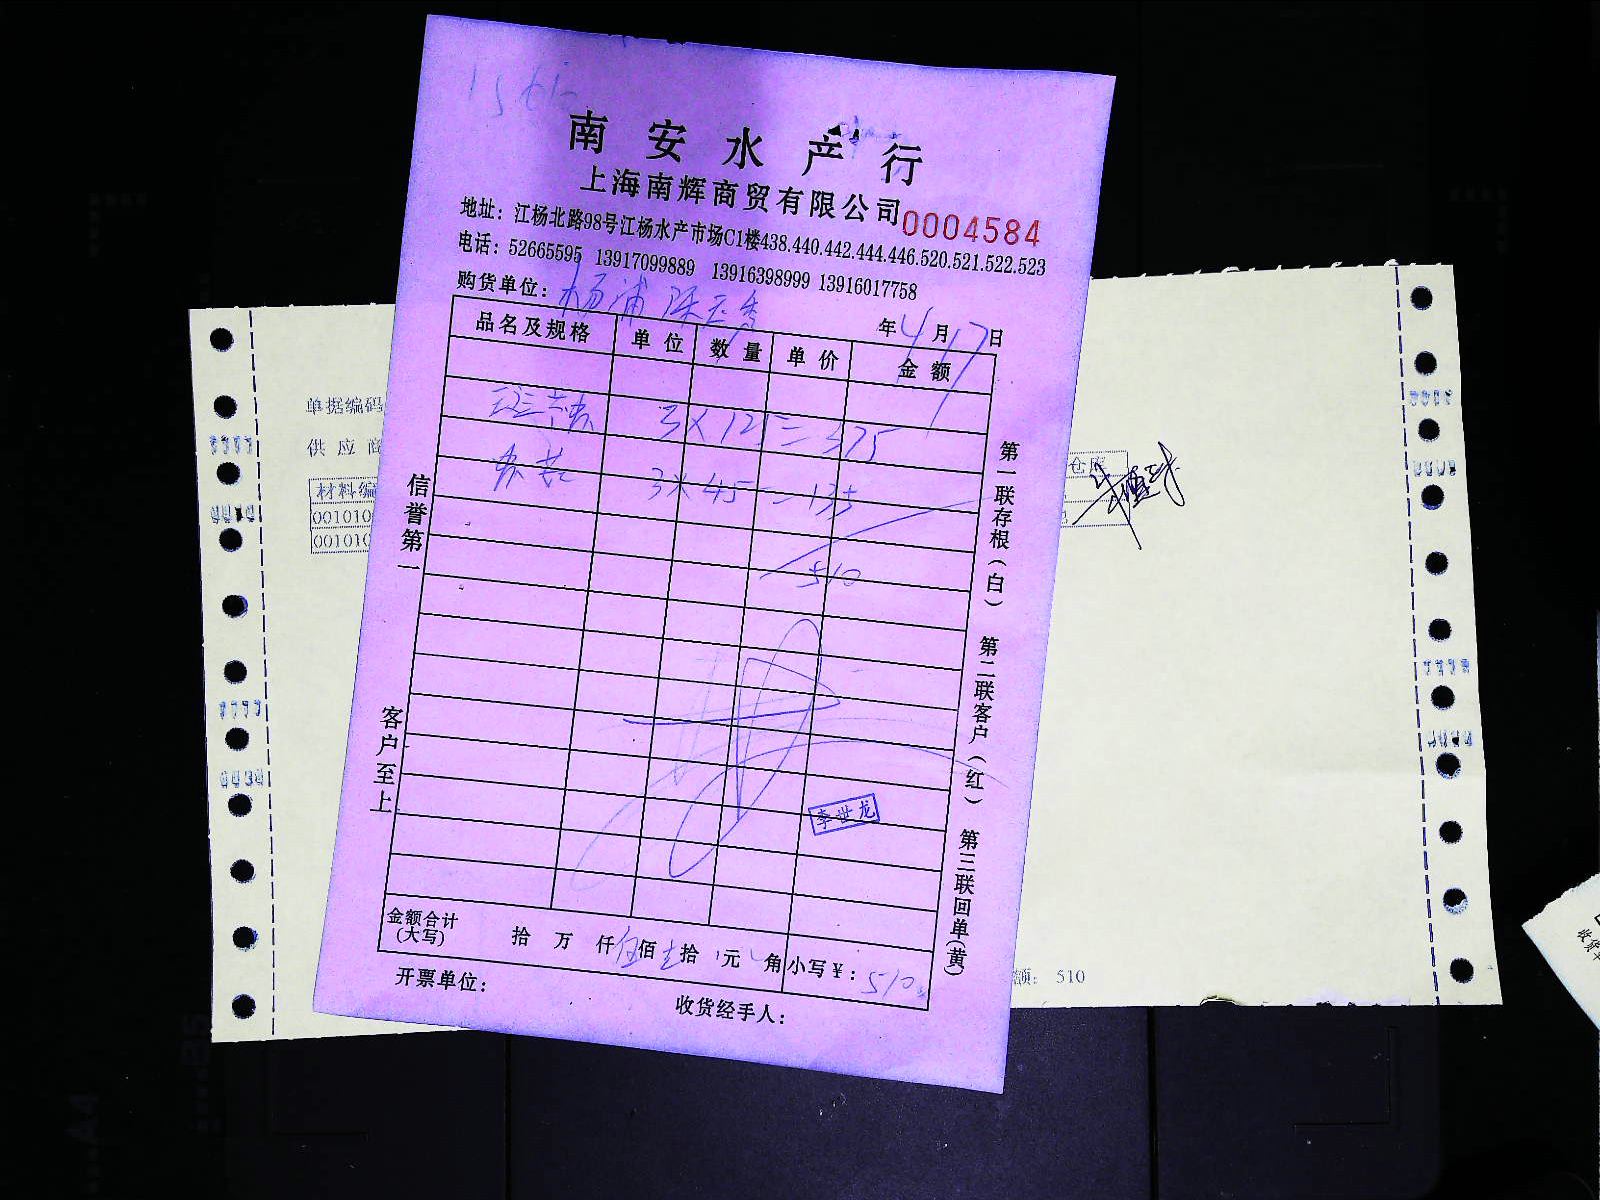 南安水产行
上海南辉商贸有限公司
0004584
地址：江杨北路98号江杨水产市场C1楼438.440.442.444.446.520.521.522.523
电话：52665595 13917099889 13916398999 13916017758
购货单位：杨浦
年4月17日
品名及规格 单位 数量 单价 金额
3×125=375
3×45=135
510
李世龙
金额合计(大写) 拾 万 仟伍佰壹拾 元 角 小写￥：510
开票单位：
收货经手人：
信誉第一
客户至上
第一联存根(白) 第二联客户(红) 第三联回单(黄)
单据编码
供应商
材料编
仓库
00101
00101
额： 510